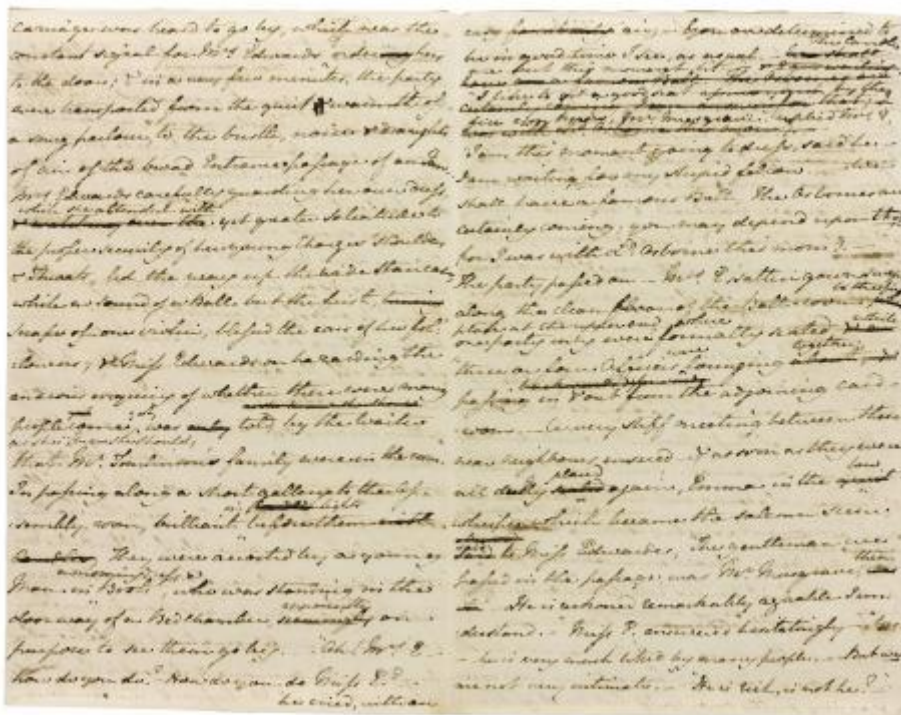 carriages were heard to go by, which was the
constant signal for Mrs. Edwards ordering hers
to the door; & in a very few minutes, the party
were transported from the quiet & warmth of
a snug parlour, to the bustle, noise & draughts
of air of the broad Entrance passage of an Inn.
Mrs. Edwards carefully guarding her own dress
while she attended with
yet greater solicitude to
the proper security of her young Charges' Shoulders
& Throats, led the way up the wide staircase,
while no sound of a Ball but the first
scrape of one violin, blessed the ears of her fol-
-lowers, & Miss Edwards on hazarding the
anxious enquiry of whether there were many
people come yet was told by the Waiter
as she knew she should,
that Mr. Tomlinson's family were in the room.
In passing along a short gallery to the As-
sembly room, brilliant in lights before them
They were accosted by a young
Man in a morning dress & Boots, who was standing in the
doorway of a Bedchamber apparently on
purpose to see them go by. "Ah! Mrs. E.
how do you do? How do you do Miss E.?
he cried, with an
easy air; you are determined to
be in good time I see, as usual. The Candles
are but this moment lit
I like to get a good seat by the
fire you know, Mr. Musgrave. replied Mrs. E.
I am this moment going to dress, said he
I am waiting for my stupid fellow. We
shall have a famous Ball. The Osbornes are
certainly coming; you may depend upon that
for I was with Ld. Osborne this morng.
The party passed on. Mrs. E's sattin gown swept
along the clean floor of the Ball room to the fire
place at the upper end, where
one party only were formally seated, while
three or four Officers were lounging together,
passing in & out from the adjoining card-
room. A very stiff meeting between these
near neighbours ensued & as soon as they were
all duely placed again, Emma in the low
whisper which became the solemn scene
said to Miss Edwardes, The gentleman we
passed in the passage, was Mr. Musgrave, then
He is reckoned remarkably agreable I un-
derstand. Miss E. answered hesitatingly Yes
he is very much liked by many people. But we
are not very intimate. He is rich, is not he?